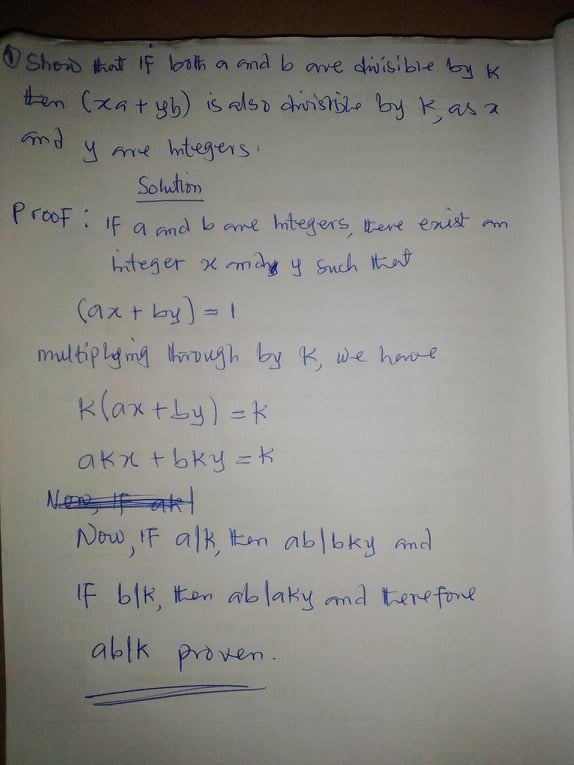 ① Show that if both a and b are divisible by k
then (xa + yb) is also divisible by k, as x
and y are integers.
Solution
Proof: if a and b are integers, there exist an
integer x and y such that
(ax + by) = 1
multiplying through by k, we have
k(ax + by) = k
akx + bky = k
Now, if ak|
Now, if a|k, then ab|bky and
if b|k, then ab|aky and therefore
ab|k proven.